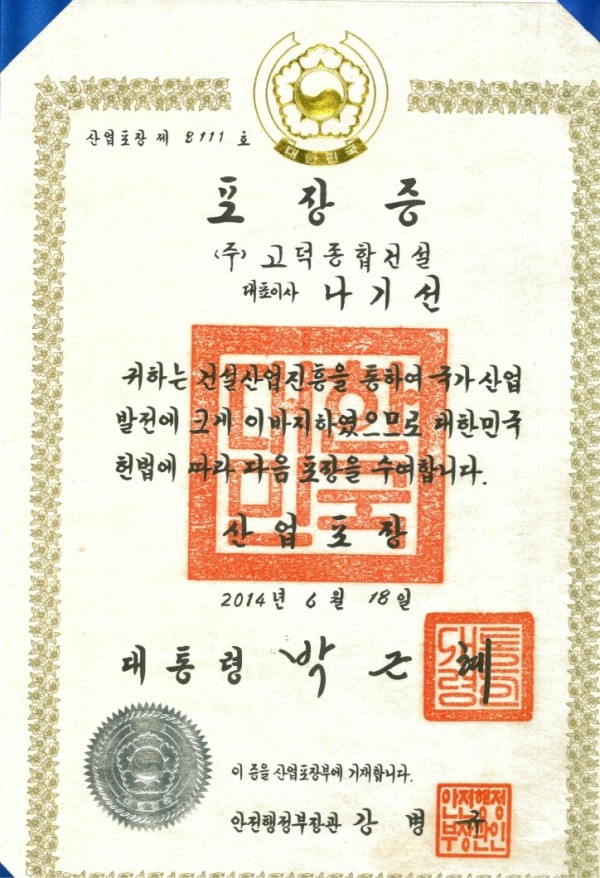 대한민국
산업포장 제 8111 호
포 장 증
(주) 고덕종합건설
대표이사 나기선
귀하는 건설산업진흥을 통하여 국가산업
발전에 크게 이바지하였으므로 대한민국
헌법에 따라 다음 포장을 수여합니다.
대한민국
산 업 포 장
2014년 6월 18일
대통령 박근혜
이 증을 산업포장부에 기재합니다.
안전행정부장관 강병규
안전행정
부장관인